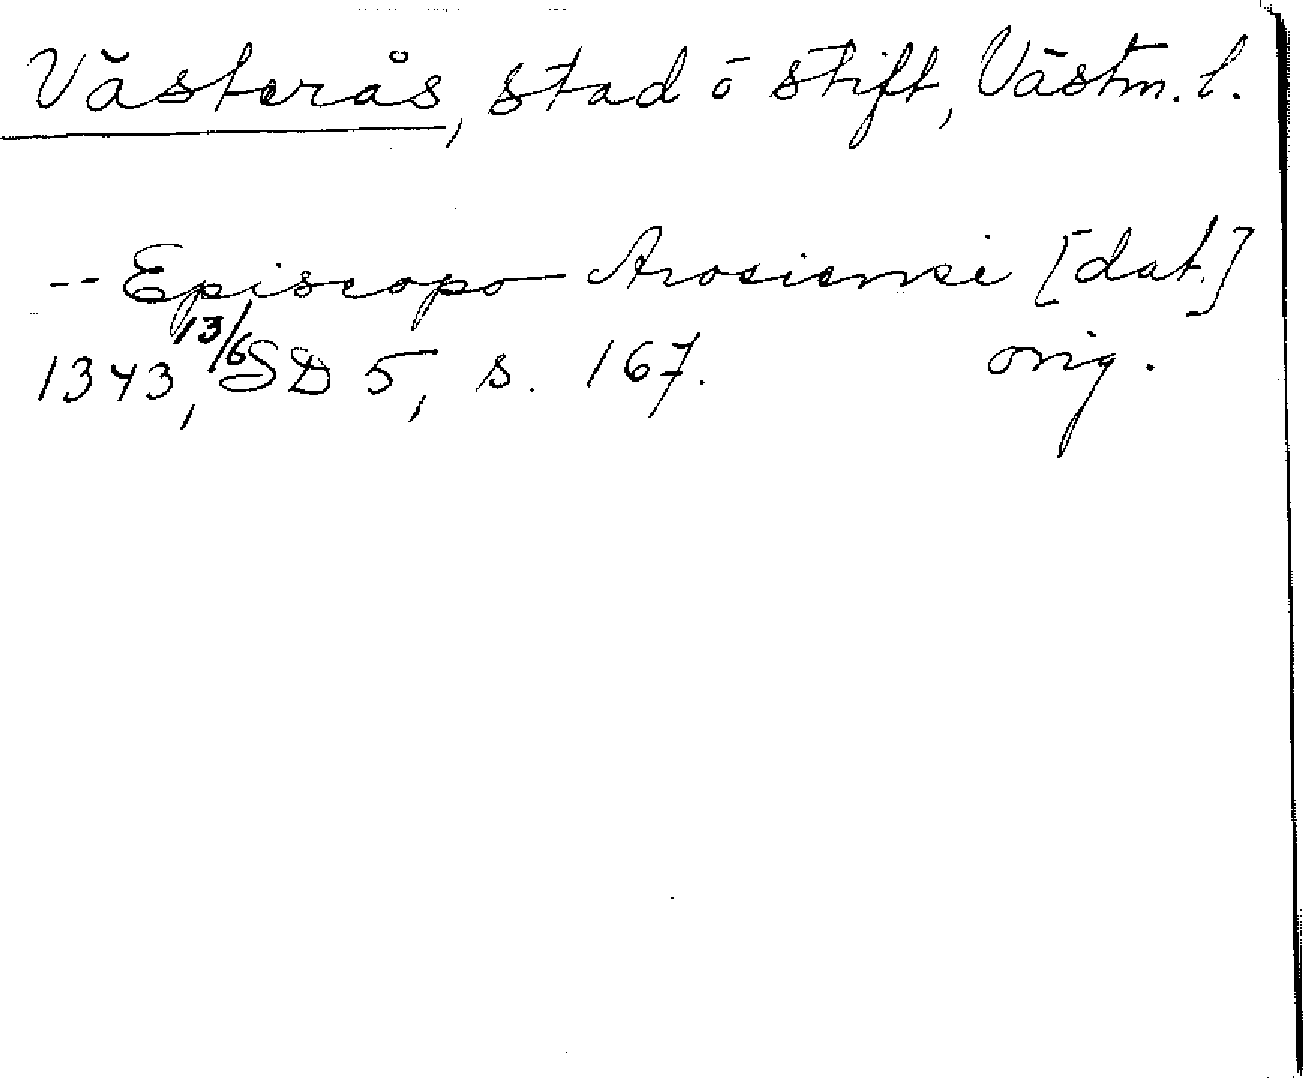 Västerås, stad o stift, Västm. l.
-- Episcopo Arosiensi [dat.]
1343, 13/6 SD 5, s. 167. orig.